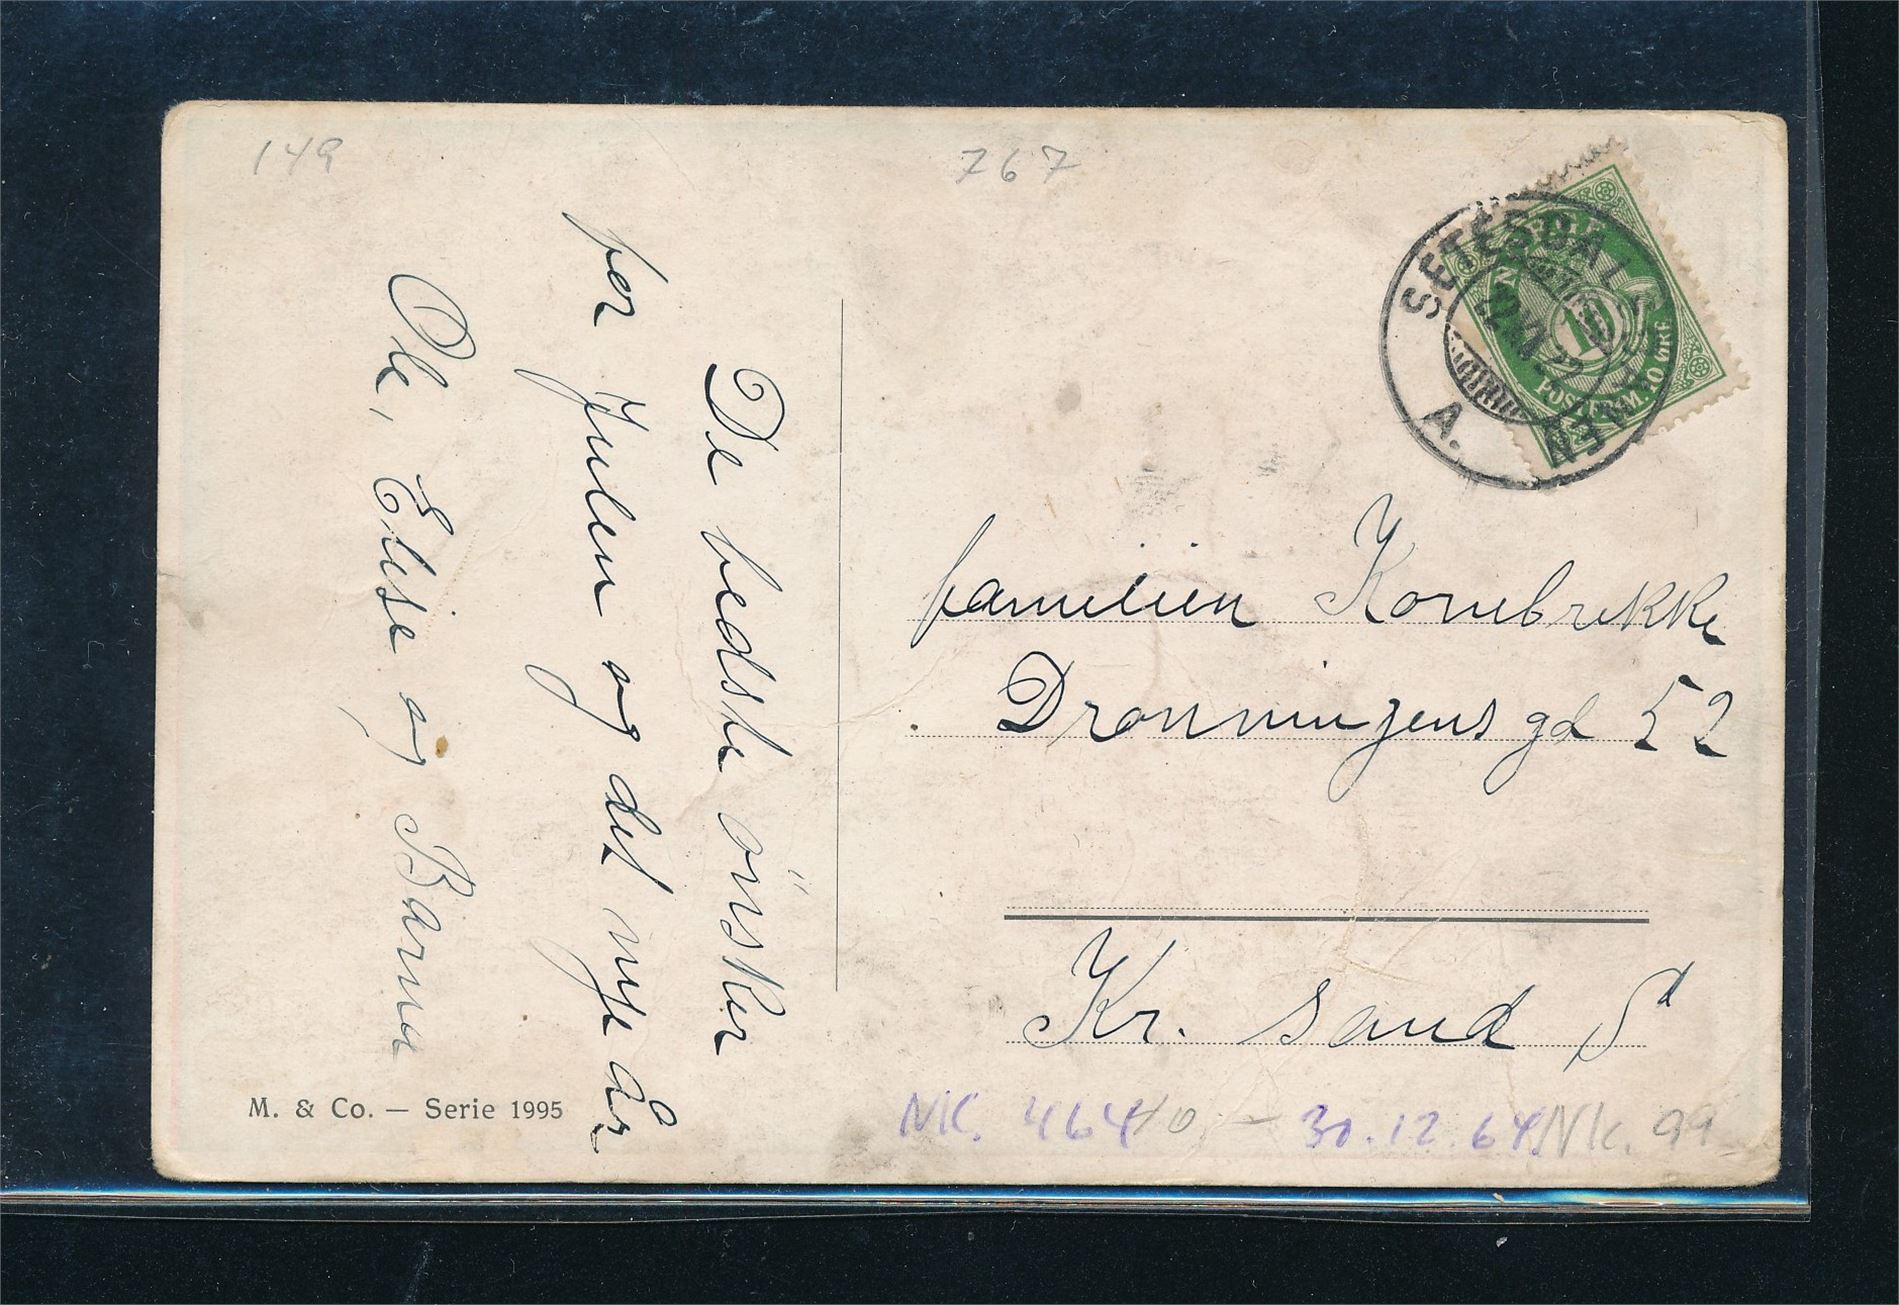 149
767
De bedste önsker
for Julen og det nye år
Ole, Elise og Barna
M. & Co. — Serie 1995
SETESDALSBANEN
A.
NORGE
10
POSTFRIM. 10 ØRE
familien Kornbrekke
Dronningens gd 52
Kr. sand S d
NK. 464 40,- 30.12.64 NK. 99